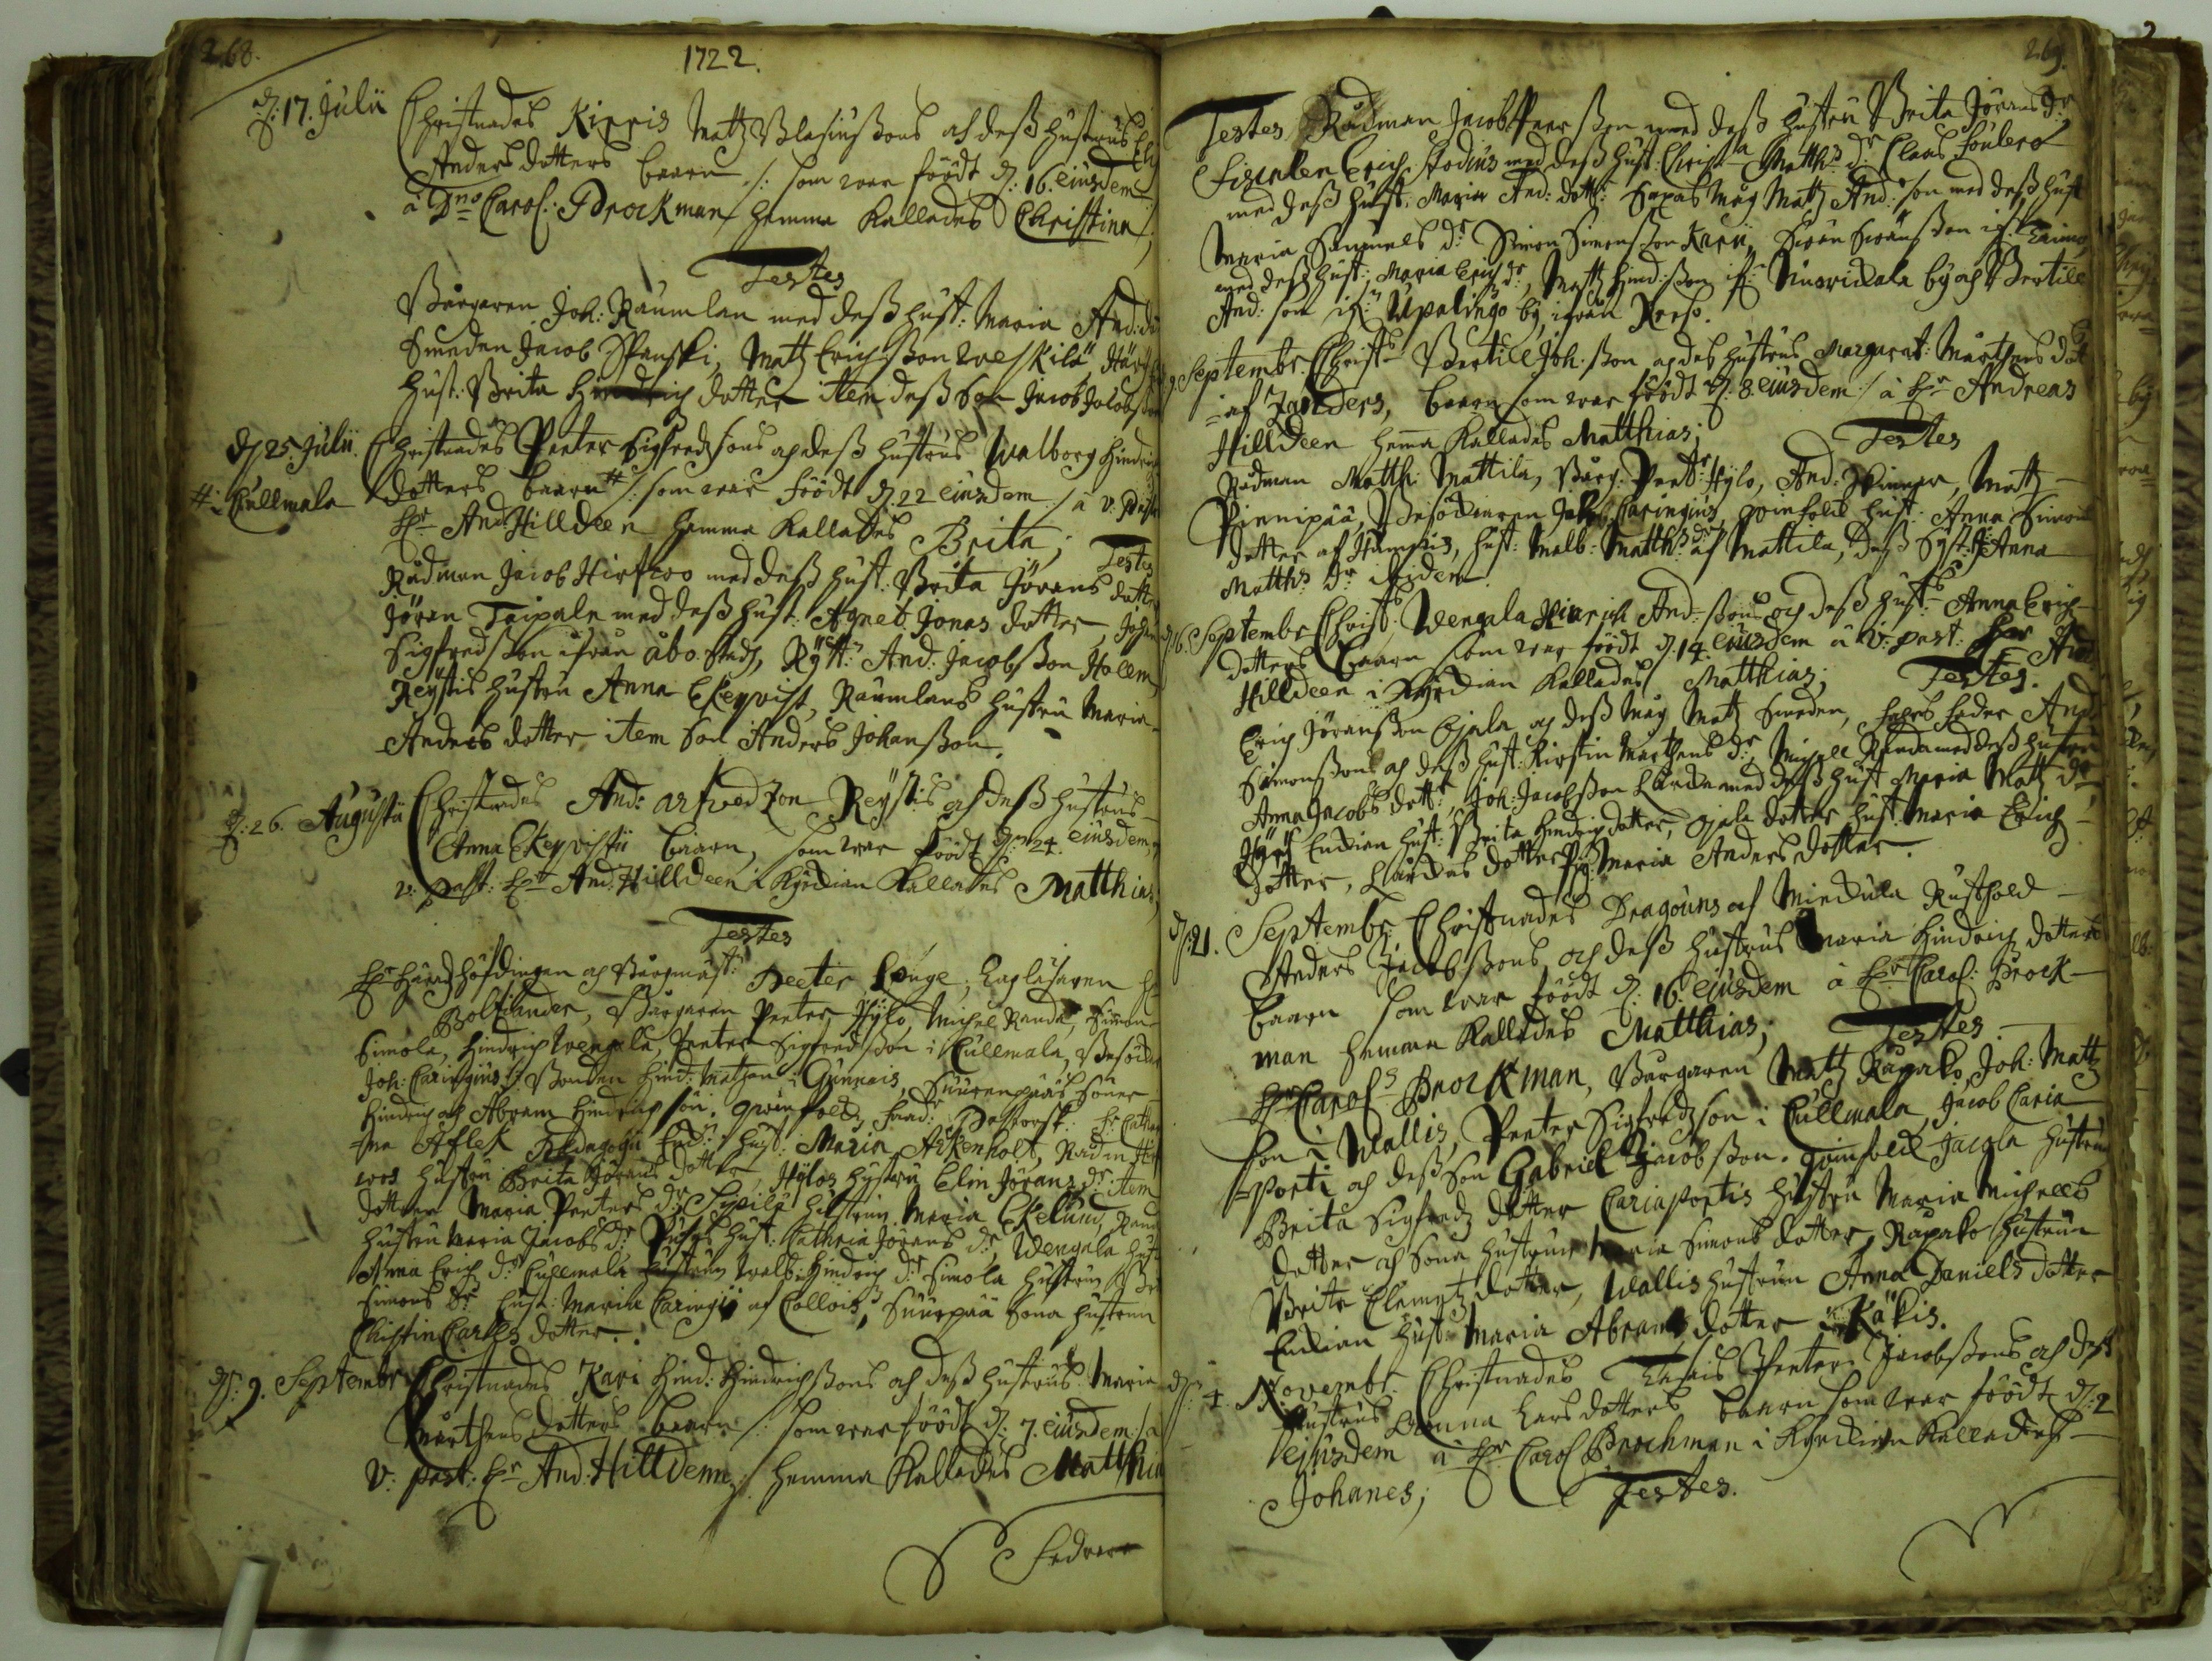 268.
1722.
d. 17. Julii Christnades Kirris Matz Blasiussons och dess hustrus
Anders dotters baarn /: som war föödt d: 16. eiusdem
â Dno Carol: Brockman hemma kallades Christina;
Testes
Borgaren Joh: Raumlan med dess hust: Maria And: dr
Smeden Jacob Spanski, Matz Erichsson
hust: Brita Hindrich dotter item dess Son Jacob Jacobsson
d 25 Julii. Christnades Peeter Sigfredssons och dess hustrus Walborg Hindrich
#: Cullmala dotters baarn # /: som war föödt d. 22 eiusdem :/ â v: Past
Hr And: Hilldeen hemma kallades Brita; Testes
Rådman Jacob Hirfwo med dess hust: Brita Jörans dotter
Jören Taipale med dess hust: Agnet: Jonas dotter, Johan
Sigfredsson ifrån åbo Stad, Rytt: And: Jacobsson Hollem,
Reystis hustru Anna Ekeqvist, Raumlans hustru Maria
Anders dotter item Son Anders Johansson.
d: 26. Augusti Christnades And: arfwedzon Reystis och dess hustrus
Anna Ekeqvistii baarn, som war föödt d: 24. eiusdem,
v: past: Hr And: Hilldeen i Kyrckian kallades Matthias,
Testes
Hr Häradzhöfdingen och Borgmäst: Peeter Lunge,
Boliander, Borgaren Peeter Hylö, Michel Randa, Simon
Simola, Hindrich Wengala, Peeter Sigfredsson i Cullmala,
Joh: Caringius, Bonden Hind: Matzon i Gunnais, Suurenpääs Söner
Hindrich och Abram Hindrichssön. qwinfolck,
Aflek Pædagogi hust: Maria Arkenholt, Rådm
hustru Brita Jörans dotter, Hylös hustru Elin Jörans dr item
dotter Maria Peeters dr, Sipilä hustrun Maria Ekelund,
hustru Maria Jacobs dr hust: Cathrin Jörans dr, Wengala hust
Anna Erich dr Cullmala hustrun Walb: Hindrich dr Simola hustrun
Simons dr hust: Maria Caringii af Collois, Suurpää Sona hustrun
Christin Carlss dotter.
d: 9. Septembr Christnades Kari Hind: Hindrichssons och dess hustrus Maria
Mårthens dotters baarn /: som war föödt d: 7. eiusdem :/ â
v: past: Hr And: Hilldenn; hemma kallades Matthia
269.
Testes Rådman Jacob Peersson med dess hustru Brita Jörans dr
Erich Kodius med dess hust: Christ: Matth: dr, Claas
med dess hust: Maria And: dott: Matz And: son med dess hust
Maria Samuels dr Simon Simonsson Kari,
med dess hust: Maria Erich dr, Matz Hind: son by och Bertill
And: son Upalingo by, ifrån
Septembr. Christ: Bertill Joh: sson och des hustrus Margaret: Mårthens dott
baarn som war föödt d: 8. eiusdem :/ â Hr Andreas
Hilldeen hema kallades Matthias; Testes
Rådman Matth: Mattila, Borg: Peet: Hylö, And: Matz
Pinnipää, Jacob Caringius, qwinfolck hust: Anna Simons
dotter af Hampis, hust: Walb: Matth: dr af Mattila, dess Syst: Anna
Matth: dr ibidem.
d: 16. Septembr Christ: Wengala Hinrich And: ssons och dess hust: Anna Erich
dotters baarn som war föödt d. 14. eiusdem â v: past: Hr And
Hilldeen i Kyrckian kallades Matthias; Testes.
Erich Jöransson Ojala och dess Måg Matz Smeden,
Simonssons och dess hust: Kirstin Marthens dr, Michell Randa med dess hustru
Anna Jacobs dott:, Joh: Jacobsson med dess hust Maria Matz dr
Enckian hust: Brita Hindrich dotter, Ojala dotter hust: Maria Erich
dotter, dotter Pig: Maria Anders dotter.
d: 21. Septembr. Christnades Dragouns af Minckula Rusthold
Anders Jacobssons och dess hustrus Maria Hindrich dotters
baarn som war föödt d: 16. eiusdem â Hr Carol: Brock-
man hemma kallades Matthias; Testes
Hr Carol: Brockman, Borgaren Matz Rapako, Joh: Matz
son i Wallis, Peeter Sigfredsson i Cullmala, Jacob Caria
=porti och dess Son Gabriel Jacobsson. qwinfolck Jacola hustru
Brita Sigfredz dotter Cariaportis hustru Maria Michells
dotter och Sona hustrun Maria Simons dotter, Rapako hustrun
Brita Clemetz dotter, Wallis hustrun Anna Daniels dotter
Enckian hust: Maria Abrams dotter i Käkis.
d: 4. Novembr. Christnades Peeter Jacobssons och dess
hustrus Anna Lars dotters baarn som war föödt d: 2
ejusdem â Hr Carol Brochman i Kyrckian kallades
Johanes; Testes.